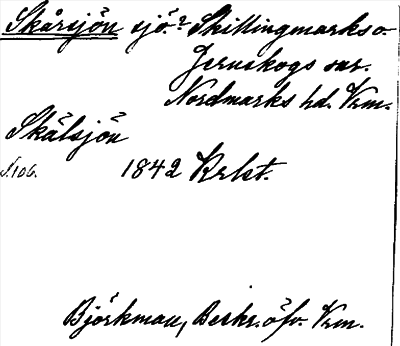 Skårsjön sjö? Skillingmarks o.
Jernskogs snr.
Nordmarks hd. Vrm.
Skålsjön
S. 106. 1842 Krlst.
Björkman, Beskr. öfv. Vrm.